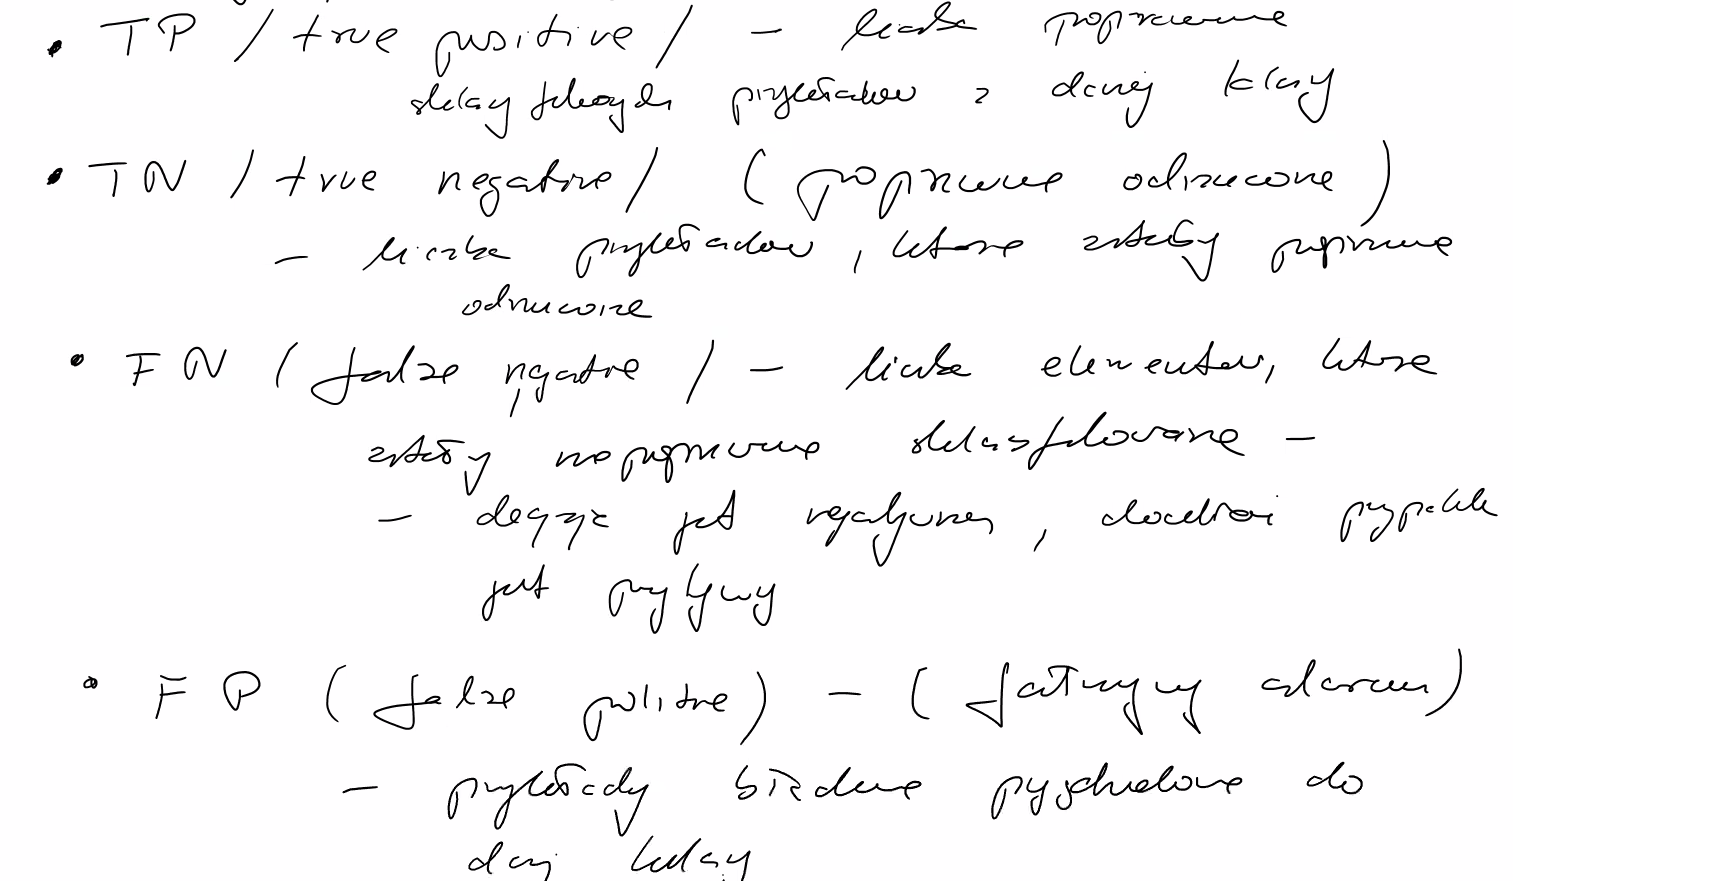 • TP / true positive / – liczba poprawnie
sklasyfikowanych przykładów z danej klasy
• TN / true negative / ( poprawnie odrzucone )
– liczba przykładów, które zostały poprawnie
odrzucone
• FN ( false negative / – liczba elementów, które
zostały niepoprawnie sklasyfikowane –
– decyzja jest negatywna, chociaż przypadek
jest pozytywny
• FP ( false positive ) – ( fałszywy alarm )
– przykłady błędnie przydzielone do
danej klasy